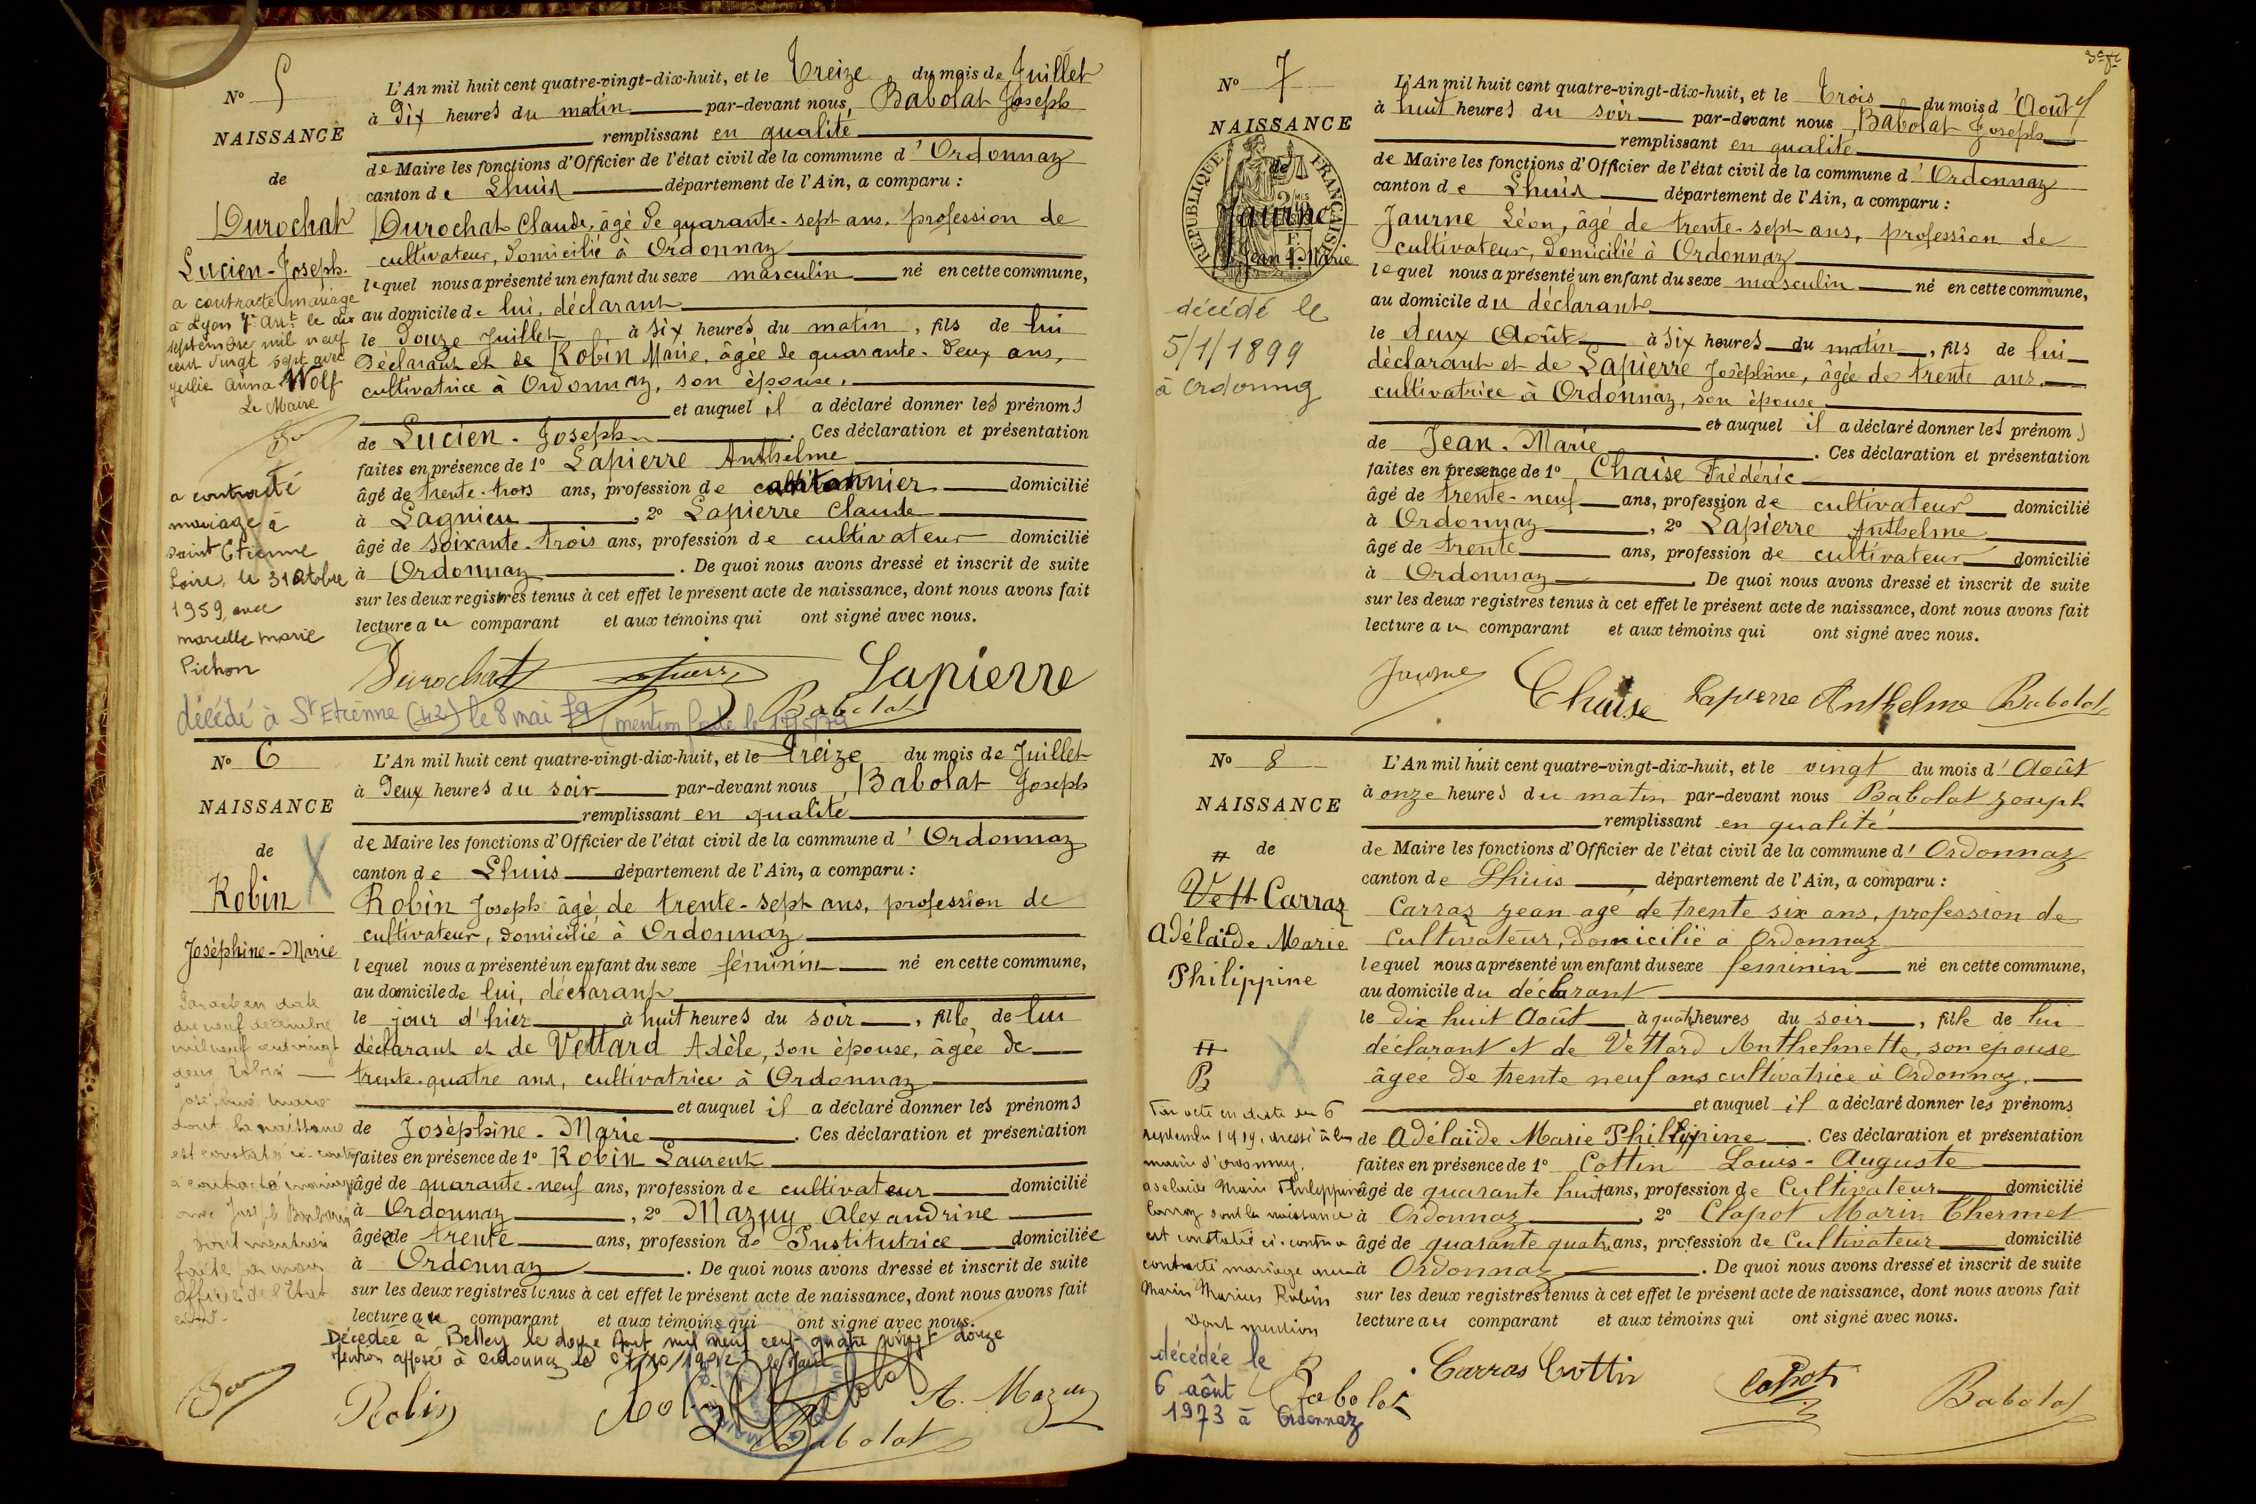 N° 5
NAISSANCE
de
Durochat
Lucien-Joseph
a contracté mariage
à Lyon 7e arrt le dix
septembre mil neuf
cent vingt sept avec
Julie Anna Wolf
Le Maire
a contracté
mariage à
Saint Etienne
Loire, le 31 Octobre
1959, avec
Marcelle Marie
Pichon
L'An mil huit cent quatre-vingt-dix-huit, et le Treize du mois de Juillet
à Dix heures du matin par-devant nous, Babolat Joseph
remplissant en qualité
de Maire les fonctions d'Officier de l'état civil de la commune d'Ordonnaz
canton de Lhuis département de l'Ain, a comparu :
Durochat Claude, âgé de quarante-sept ans, profession de
cultivateur, domicilié à Ordonnaz
lequel nous a présenté un enfant du sexe masculin né en cette commune,
au domicile de lui, déclarant
le douze Juillet à six heures du matin, fils de lui
déclarant et de Robin Marie, âgée de quarante-deux ans,
cultivatrice à Ordonnaz, son épouse,
et auquel il a déclaré donner les prénoms
de Lucien-Joseph. Ces déclaration et présentation
faites en présence de 1° Lapierre Anthelme
âgé de trente-trois ans, profession de cantonnier domicilié
à Lagnieu, 2° Lapierre Claude
âgé de soixante-trois ans, profession de cultivateur domicilié
à Ordonnaz. De quoi nous avons dressé et inscrit de suite
sur les deux registres tenus à cet effet le présent acte de naissance, dont nous avons fait
lecture au comparant et aux témoins qui ont signé avec nous.
Durochat Lapierre
Babolat
décédé à St Etienne (42) le 8 mai 79 (mention portée le 17/5/79
N° 6
NAISSANCE
de
Robin
Joséphine-Marie
Par acte en date
du neuf décembre
mil neuf cent vingt
deux Robin
Joséphine Marie
dont la naissance
est constatée ci-contre
a contracté mariage
avec Joseph
dont mention
faite par nous
Officier de l'Etat
civil.
L'An mil huit cent quatre-vingt-dix-huit, et le Treize du mois de Juillet
à Deux heures du soir par-devant nous, Babolat Joseph
remplissant en qualité
de Maire les fonctions d'Officier de l'état civil de la commune d'Ordonnaz
canton de Lhuis département de l'Ain, a comparu :
Robin Joseph âgé de trente-sept ans, profession de
cultivateur, domicilié à Ordonnaz
lequel nous a présenté un enfant du sexe féminin né en cette commune,
au domicile de lui, déclarant
le jour d'hier à huit heures du soir, fille de lui
déclarant et de Vettard Adèle, son épouse, âgée de
trente-quatre ans, cultivatrice à Ordonnaz
et auquel il a déclaré donner les prénoms
de Joséphine-Marie. Ces déclaration et présentation
faites en présence de 1° Robin Laurent
âgé de quarante-neuf ans, profession de cultivateur domicilié
à Ordonnaz, 2° Mazuy Alexandrine
âgée de trente ans, profession de Institutrice domiciliée
à Ordonnaz. De quoi nous avons dressé et inscrit de suite
sur les deux registres tenus à cet effet le présent acte de naissance, dont nous avons fait
lecture au comparant et aux témoins qui ont signé avec nous.
Décédée à Belley le douze Aout mil neuf cent quatre vingt douze
Mention apposée à Ordonnaz le 07/10/1992 le Maire
Robin Robin Babolat A. Mazuy
Babolat
N° 7
NAISSANCE
de
REPUBLIQUE FRANCAISE
Jaurne
Jean-Marie
décédé le
5/1/1899
à Ordonnaz
L'An mil huit cent quatre-vingt-dix-huit, et le Trois du mois d'Août
à huit heures du soir par-devant nous, Babolat Joseph
remplissant en qualité
de Maire les fonctions d'Officier de l'état civil de la commune d'Ordonnaz
canton de Lhuis département de l'Ain, a comparu :
Jaurne Léon, âgé de trente-sept ans, profession de
cultivateur, domicilié à Ordonnaz
lequel nous a présenté un enfant du sexe masculin né en cette commune,
au domicile du déclarant
le deux Août à six heures du matin, fils de lui
déclarant et de Lapierre Joséphine, âgée de trente ans
cultivatrice à Ordonnaz, son épouse
et auquel il a déclaré donner les prénoms
de Jean-Marie. Ces déclaration et présentation
faites en présence de 1° Chaise Frédéric
âgé de trente-neuf ans, profession de cultivateur domicilié
à Ordonnaz, 2° Lapierre Anthelme
âgé de trente ans, profession de cultivateur domicilié
à Ordonnaz. De quoi nous avons dressé et inscrit de suite
sur les deux registres tenus à cet effet le présent acte de naissance, dont nous avons fait
lecture au comparant et aux témoins qui ont signé avec nous.
Jaurne Chaise Lapierre Anthelme Babolat
N° 8
NAISSANCE
de
Vett Carraz
Adélaïde Marie
Philippine
B
Par acte en date du 6
septembre 1919, dressé à la
mairie d'Ordonnaz,
Adelaïde Marie Philippine
Carraz dont la naissance
est constatée ci-contre a
contracté mariage avec
Marin Marius Robin
Dont mention
Babolat
décédée le
6 août
1973 à Ordonnaz
L'An mil huit cent quatre-vingt-dix-huit, et le vingt du mois d'Août
à onze heures du matin par-devant nous Babolat Joseph
remplissant en qualité
de Maire les fonctions d'Officier de l'état civil de la commune d'Ordonnaz
canton de Lhuis, département de l'Ain, a comparu :
Carraz Jean agé de trente six ans, profession de
Cultivateur, domicilié à Ordonnaz
lequel nous a présenté un enfant du sexe feminin né en cette commune,
au domicile du déclarant
le dix huit Août à quatre heures du soir, fille de lui
déclarant et de Vettard Anthelmette, son epouse
âgée de trente neuf ans cultivatrice à Ordonnaz.
et auquel il a déclaré donner les prénoms
de Adélaïde Marie Philippine. Ces déclaration et présentation
faites en présence de 1° Cottin Louis-Auguste
âgé de quarante huit ans, profession de Cultivateur domicilié
à Ordonnaz, 2° Clapot Marin Thermet
âgé de quarante quatre ans, profession de Cultivateur domicilié
à Ordonnaz. De quoi nous avons dressé et inscrit de suite
sur les deux registres tenus à cet effet le présent acte de naissance, dont nous avons fait
lecture au comparant et aux témoins qui ont signé avec nous.
Carras Cottin Clapot Babolat